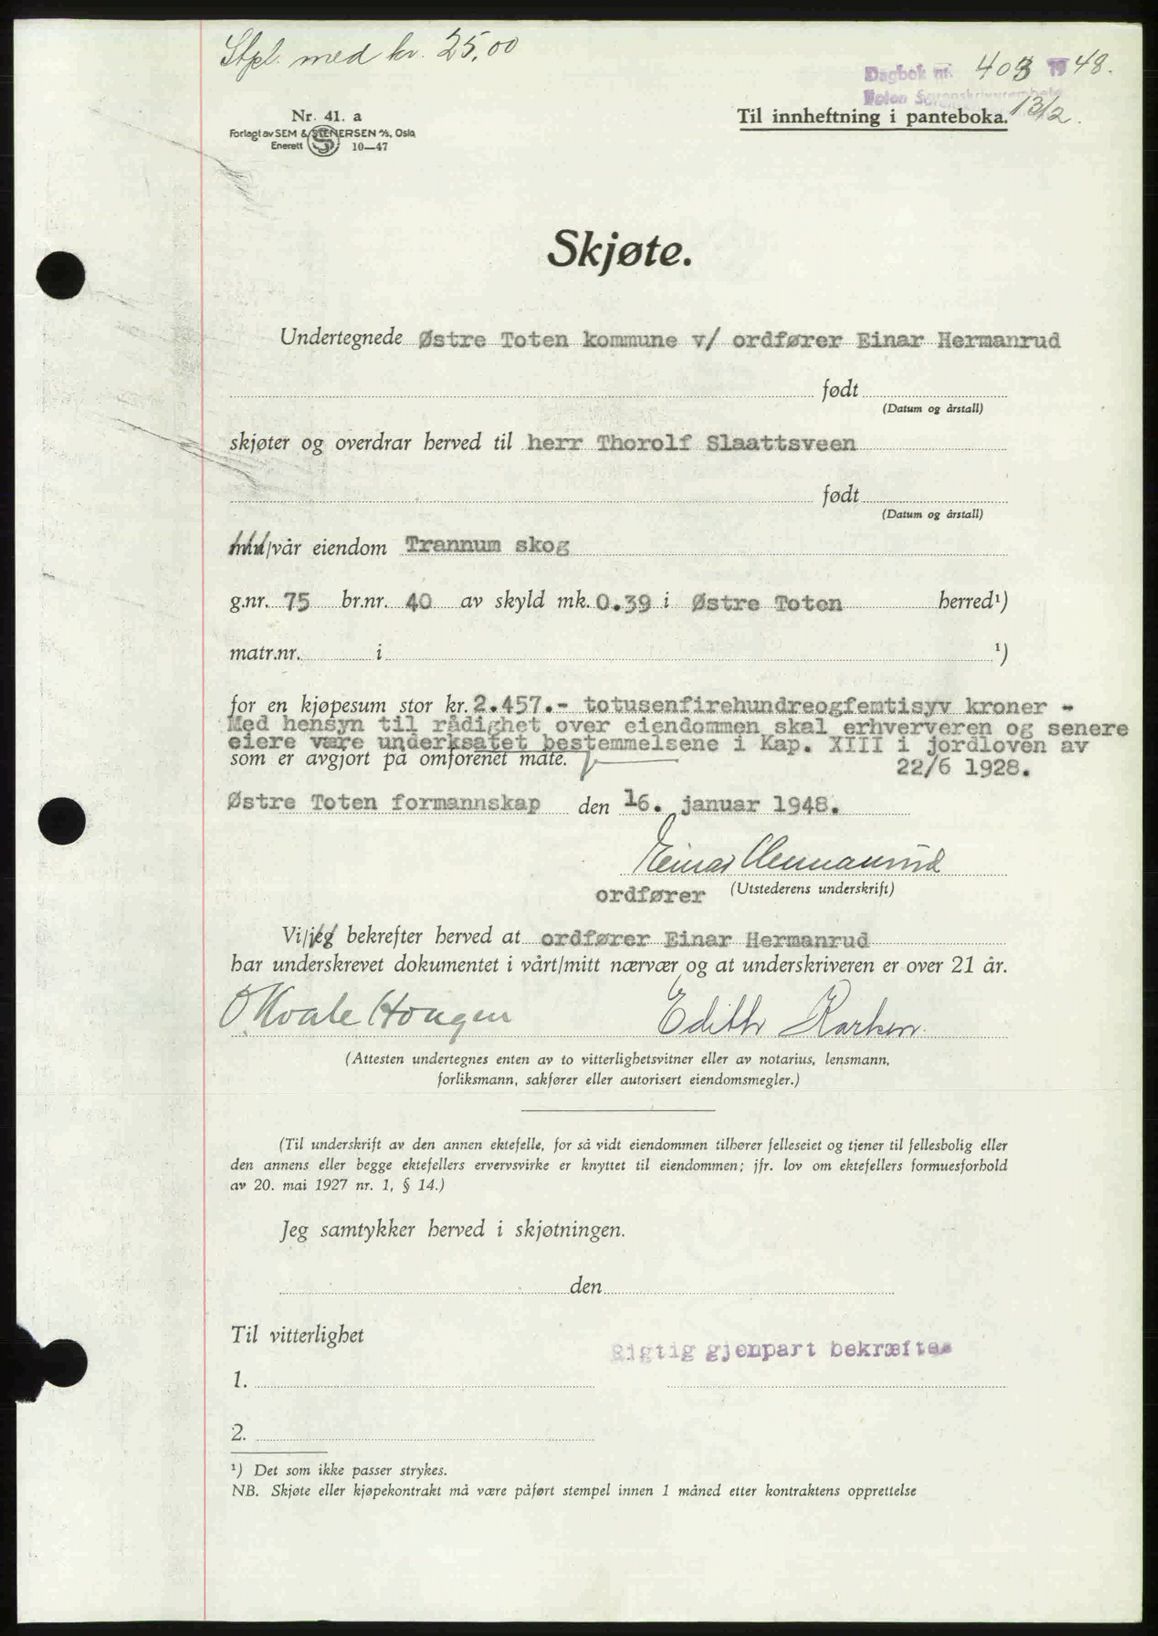 Stpl. med kr. 25,00
Dagbok nr. 403 1948.
Toten Sorenskriverembete
13/2.
Nr. 41. a
Forlagt av SEM & STENERSEN A/S, Oslo
Enerett 10—47
Til innheftning i panteboka.
Skjøte.
Undertegnede Østre Toten kommune v/ ordfører Einar Hermanrud
født
(Datum og årstall)
skjøter og overdrar herved til herr Thorolf Slaattsveen
født
(Datum og årstall)
min/vår eiendom Trannum skog
g.nr. 75 br.nr. 40 av skyld mk. 0.39 i Østre Toten herred¹)
matr.nr. i ¹)
for en kjøpesum stor kr. 2.457.- totusenfirehundreogfemtisyv kroner -
Med hensyn til rådighet over eiendommen skal erhververen og senere
eiere være underkastet bestemmelsene i Kap. XIII i jordloven av
som er avgjort på omforenet måte. 22/6 1928.
Østre Toten formannskap den 16. januar 1948.
Einar Hermanrud
ordfører (Utstederens underskrift)
Vi/jeg bekrefter herved at ordfører Einar Hermanrud
har underskrevet dokumentet i vårt/mitt nærvær og at underskriveren er over 21 år.
O. Kvale Haugen Edith Karlsen.
(Attesten undertegnes enten av to vitterlighetsvitner eller av notarius, lensmann,
forliksmann, sakfører eller autorisert eiendomsmegler.)
(Til underskrift av den annen ektefelle, for så vidt eiendommen tilhører felleseiet og tjener til fellesbolig eller
den annens eller begge ektefellers ervervsvirke er knyttet til eiendommen; jfr. lov om ektefellers formuesforhold
av 20. mai 1927 nr. 1, § 14.)
Jeg samtykker herved i skjøtningen.
den
Til vitterlighet
Rigtig gjenpart bekræftes
1.
2.
¹) Det som ikke passer strykes.
NB. Skjøte eller kjøpekontrakt må være påført stempel innen 1 måned etter kontraktens opprettelse